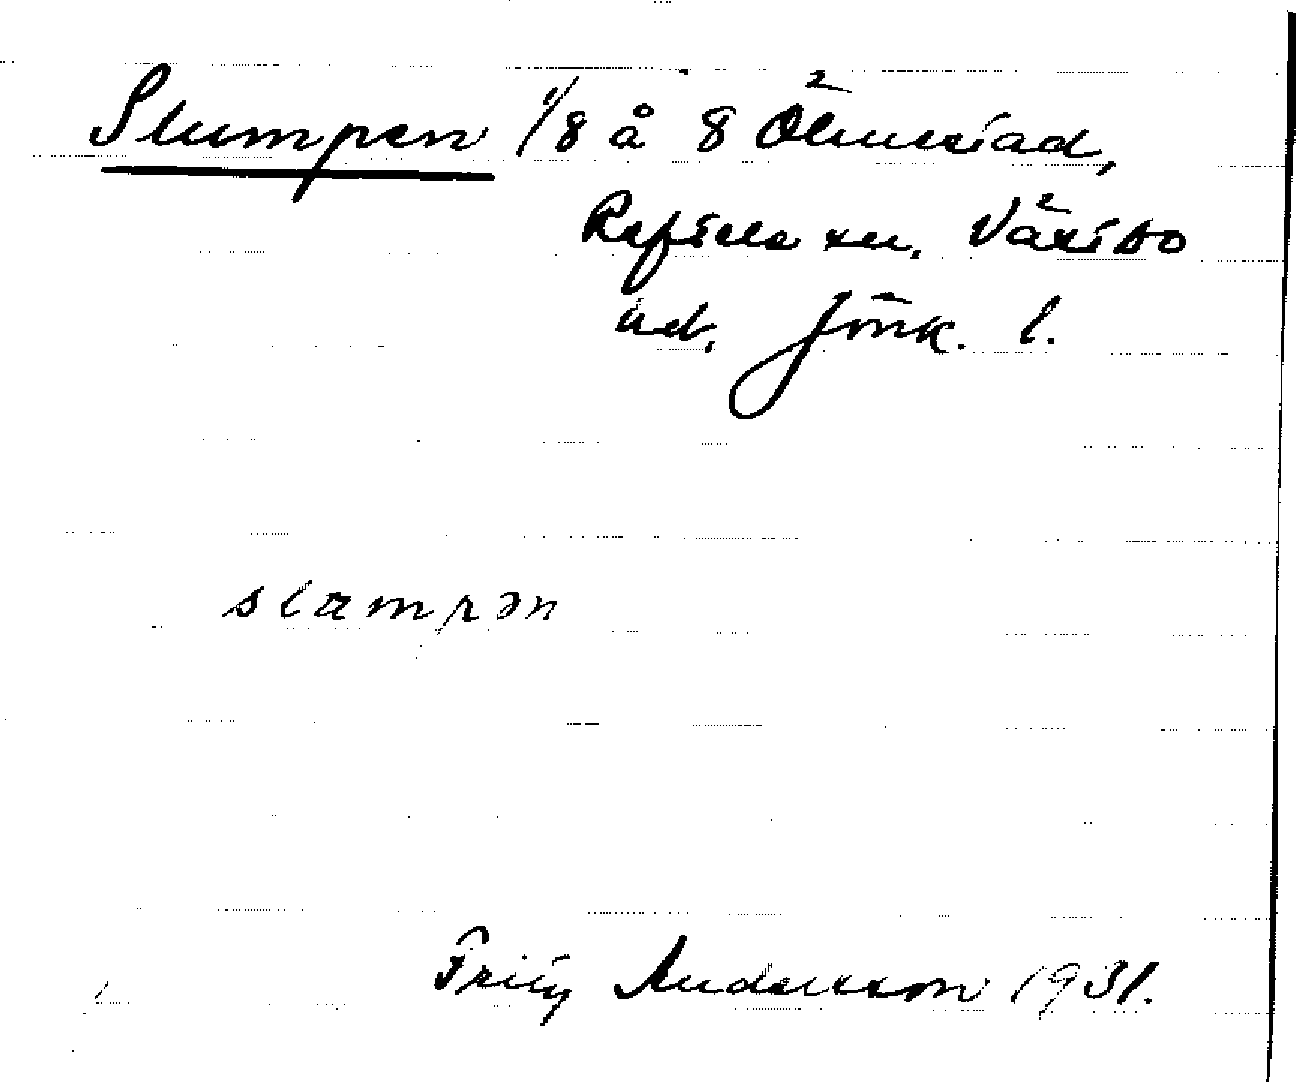 Slumpen 1/8 å 8 Ölmestad,
Reftele sn. Västbo
hd. Jönk. l.
slumpən
Fritz Andersson 1931.